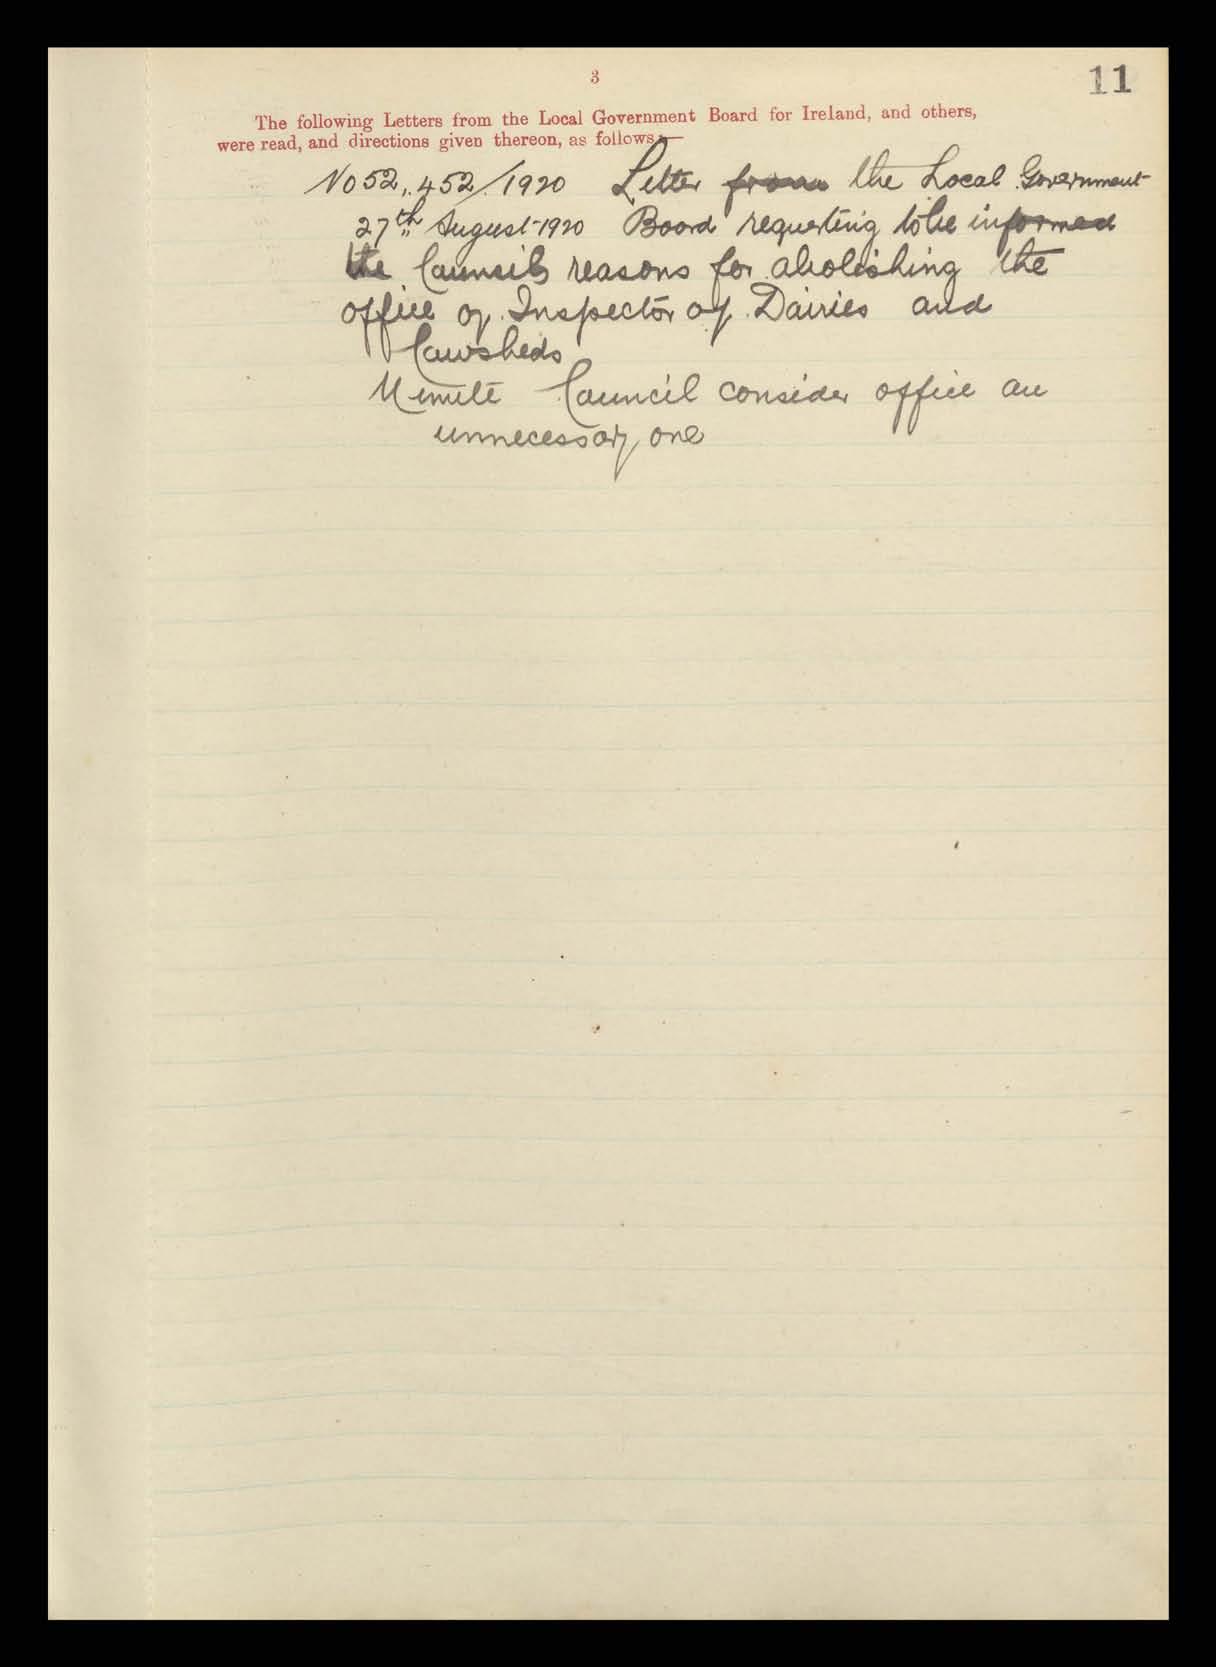 3
11
The following Letters from the Local Government Board for Ireland, and others,
were read, and directions given thereon, as follows:—
No 52,452/1920 Letter from the Local Government
27th August 1920 Board requesting to be informed
the Councils reasons for abolishing the
office of Inspector of Dairies and
Cowsheds
Minute Council consider office an
unnecessary one